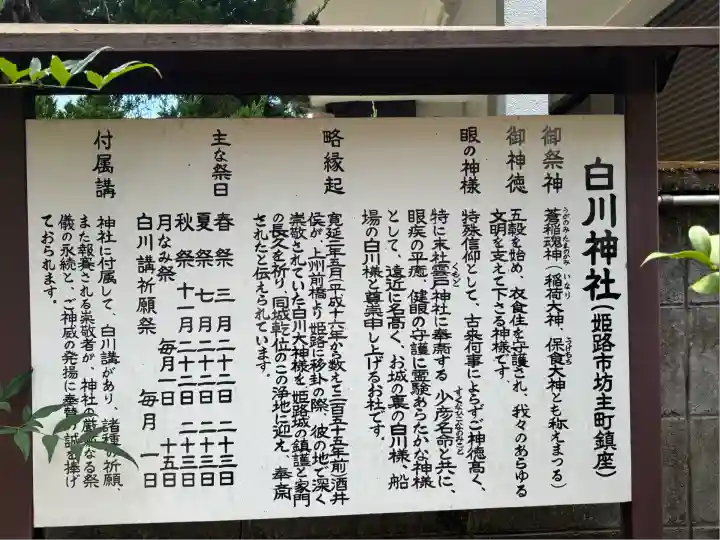 白川神社(姫路市坊主町鎮座)
御祭神
蒼稲魂神(稲荷大神、保食大神とも称えまつる)
うがのみたまのかみ いなり うけもち
御神徳
五穀を始め、衣食住を守護され、我々のあらゆる
文明を支えて下さる神様です。
眼の神様
特殊信仰として、古来何事によらずご神徳高く、
特に末社雲戸神社に奉斎する 少彦名命と共に、
くもど すくなひこなのみこと
眼疾の平癒、健眼の守護に霊験あらたかな神様
として、遠近に名高く、お城の裏の白川様、船
場の白川様と尊崇申し上げるお社です。
略縁起
寛延二年五月(平成十六年から数えて二百五十五年前)酒井
侯が、上州前橋より姫路に移封の際、彼の地で深く
崇敬されていた白川大神様を、姫路城の鎮護と家門
の長久を祈り、同城乾位のこの浄地に迎え、奉斎
されたと伝えられています。
主な祭日
春祭 三月二十二日 二十三日
夏祭 七月二十二日 二十三日
秋祭 十一月二十二日 二十三日
月なみ祭 毎月一日 十五日
白川講祈願祭 毎月一日
付属講
神社に付属して、白川講があり、諸種の祈願、
また報賽される崇敬者が、神社の厳粛なる祭
儀の永続と、ご神威の発揚に奉賛の誠を捧げ
ておられます。